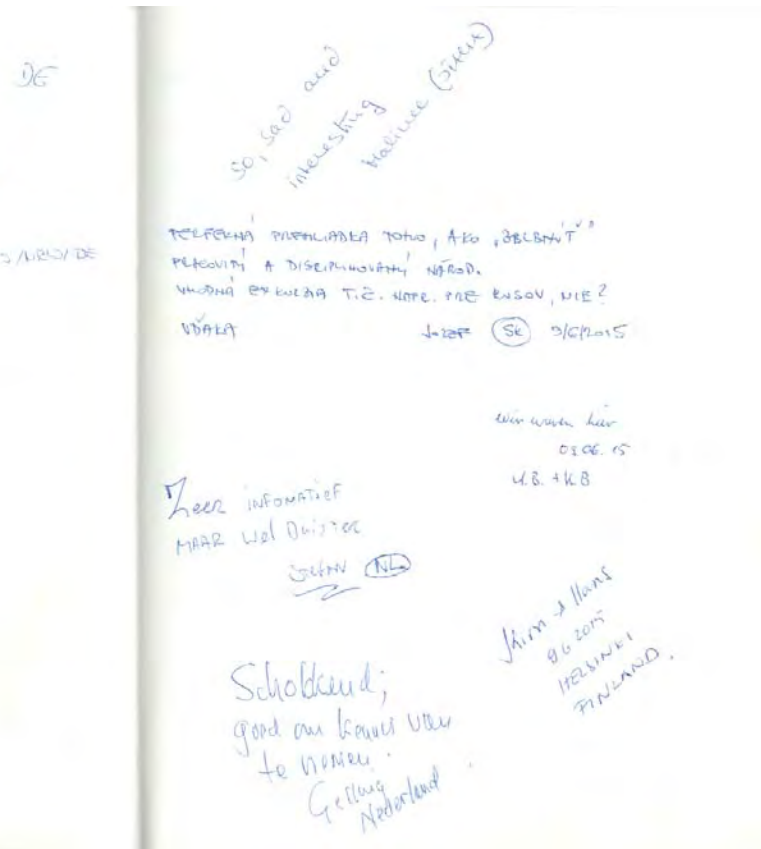 DE
/NRW/DE
so, sad and
interesting
PERFEKNÁ PREHLIADKA TOHO, AKO „OBLBNÚŤ"
PRACOVITÝ A DISCIPLINOVANÝ NÁROD.
VHODNÁ EXKURZIA T.Č. NAPR. PRE RUSOV, NIE?
VĎAKA JOZEF SK 9/6/2015
Wir waren hier
09.06.15
U.B. + K.B
Zeer INFOMATIEF
MAAR wel Duister
STEFAN NL
+ Hans
9 6 2015
HELSINKI
FINLAND.
Schokkend;
goed om kennis van
te nemen.
Nederland